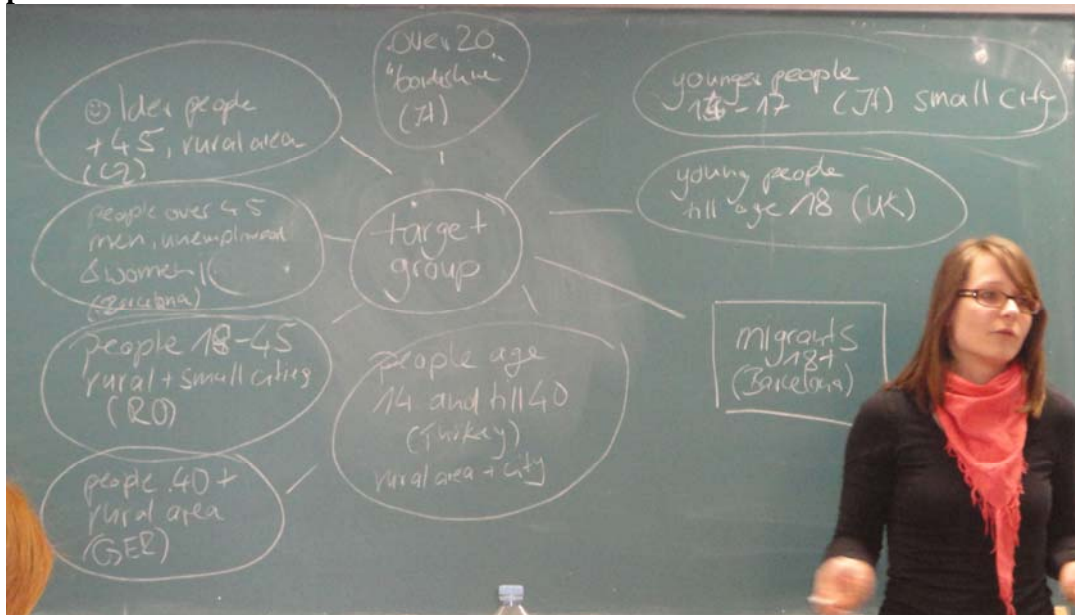 over 20
"borderline"
(JI)
☺lder people
+45, rural area
(CZ)
younger people
16-17 (JI) small city
young people
till age 18 (UK)
people over 45
men, unemployed
women
(Barcelona)
target
group
people 18-45
rural + small cities
(RO)
people age
14 and till 40
(Turkey)
rural area + city
migrants
18+
(Barcelona)
people 40+
rural area
(GER)